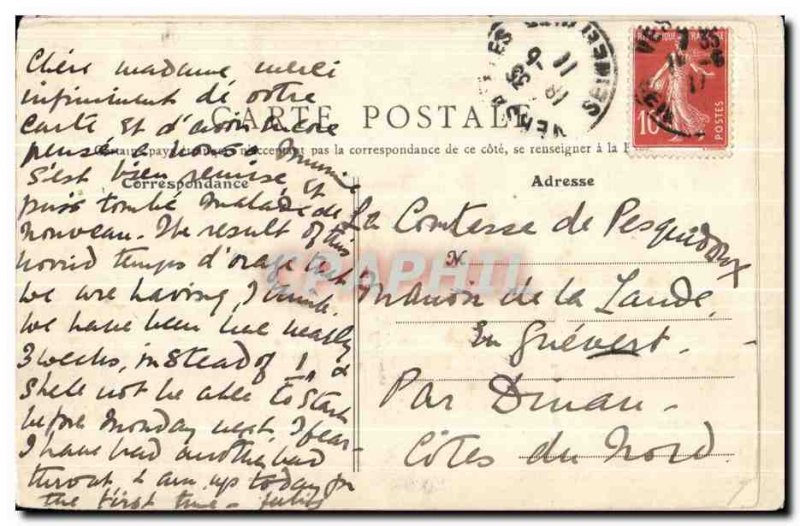 Chère madame, merci
infiniment de votre
carte et d'avoir encore
pensé a nous.
s'est bien remise, et
puis tombé malade de
nouveau. The result of this
horrid temps d'orage that
we are having, I think.
We have been here nearly
3 weeks, instead of 1, &
shall not be able to start
before Monday next, I fear-
I have had another bad
throat & am up today for
the first time -
CARTE POSTALE
pas la correspondance de ce côté, se renseigner à la
Correspondance
Adresse
La Comtesse de Pesquidoux
N.
Manoir de la Lande,
En Quévert.
Par Dinan -
Côtes du Nord.
REPUBLIQUE FRANCAISE
10
POSTES
CPAPHIL